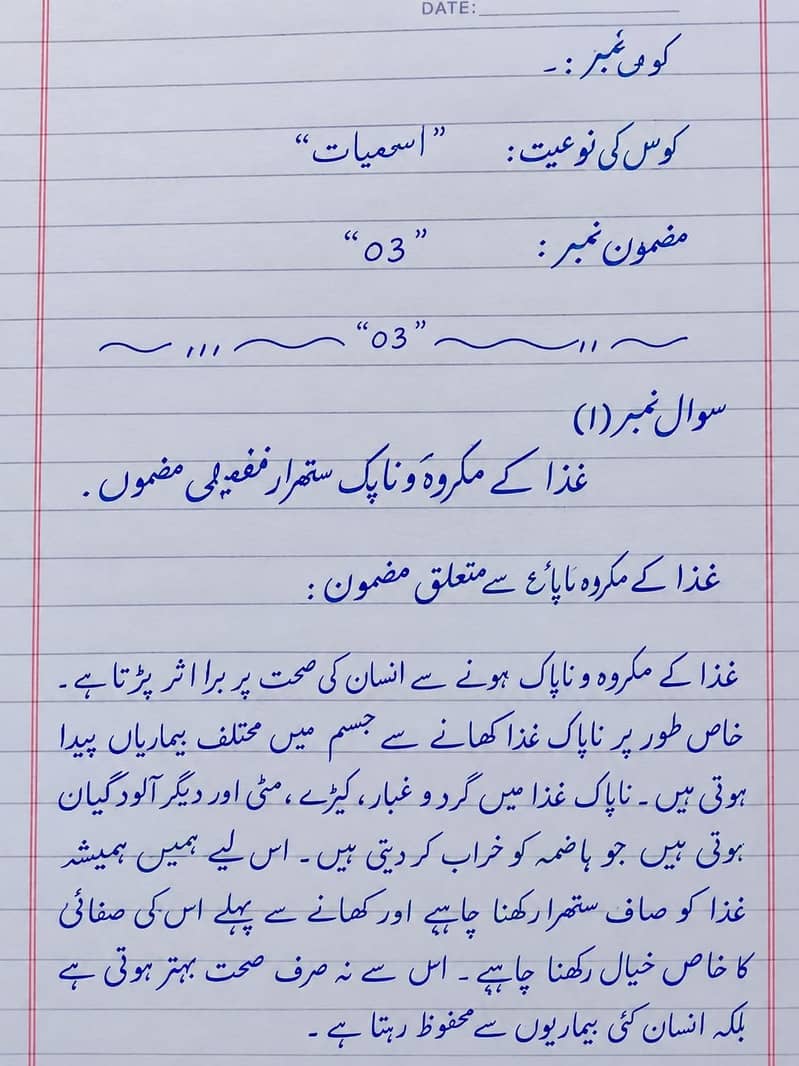 DATE:
نمبر :۔
کوس کی نوعیت : ”اسمیات“
مضمون نمبر : ”03“
”03“
سوال نمبر (1)
غذا کے مکروہ و ناپک ستھرار مضموں .
غذا کے مکروہ سے متعلق مضمون :
غذا کے مکروہ و ناپاک ہونے سے انسان کی صحت پر برا اثر پڑتا ہے ۔
خاص طور پر ناپاک غذا کھانے سے جسم میں مختلف بیماریاں پیدا
ہوتی ہیں ۔ ناپاک غذا میں گرد و غبار، کیڑے، مٹی اور دیگر آلودگیان
ہوتی ہیں جو ہاضمہ کو خراب کر دیتی ہیں ۔ اس لیے ہمیں ہمیشہ
غذا کو صاف ستھرا رکھنا چاہیے اور کھانے سے پہلے اس کی صفائی
کا خاص خیال رکھنا چاہیے ۔ اس سے نہ صرف صحت بہتر ہوتی ہے
بلکہ انسان کئی بیماریوں سے محفوظ رہتا ہے ۔